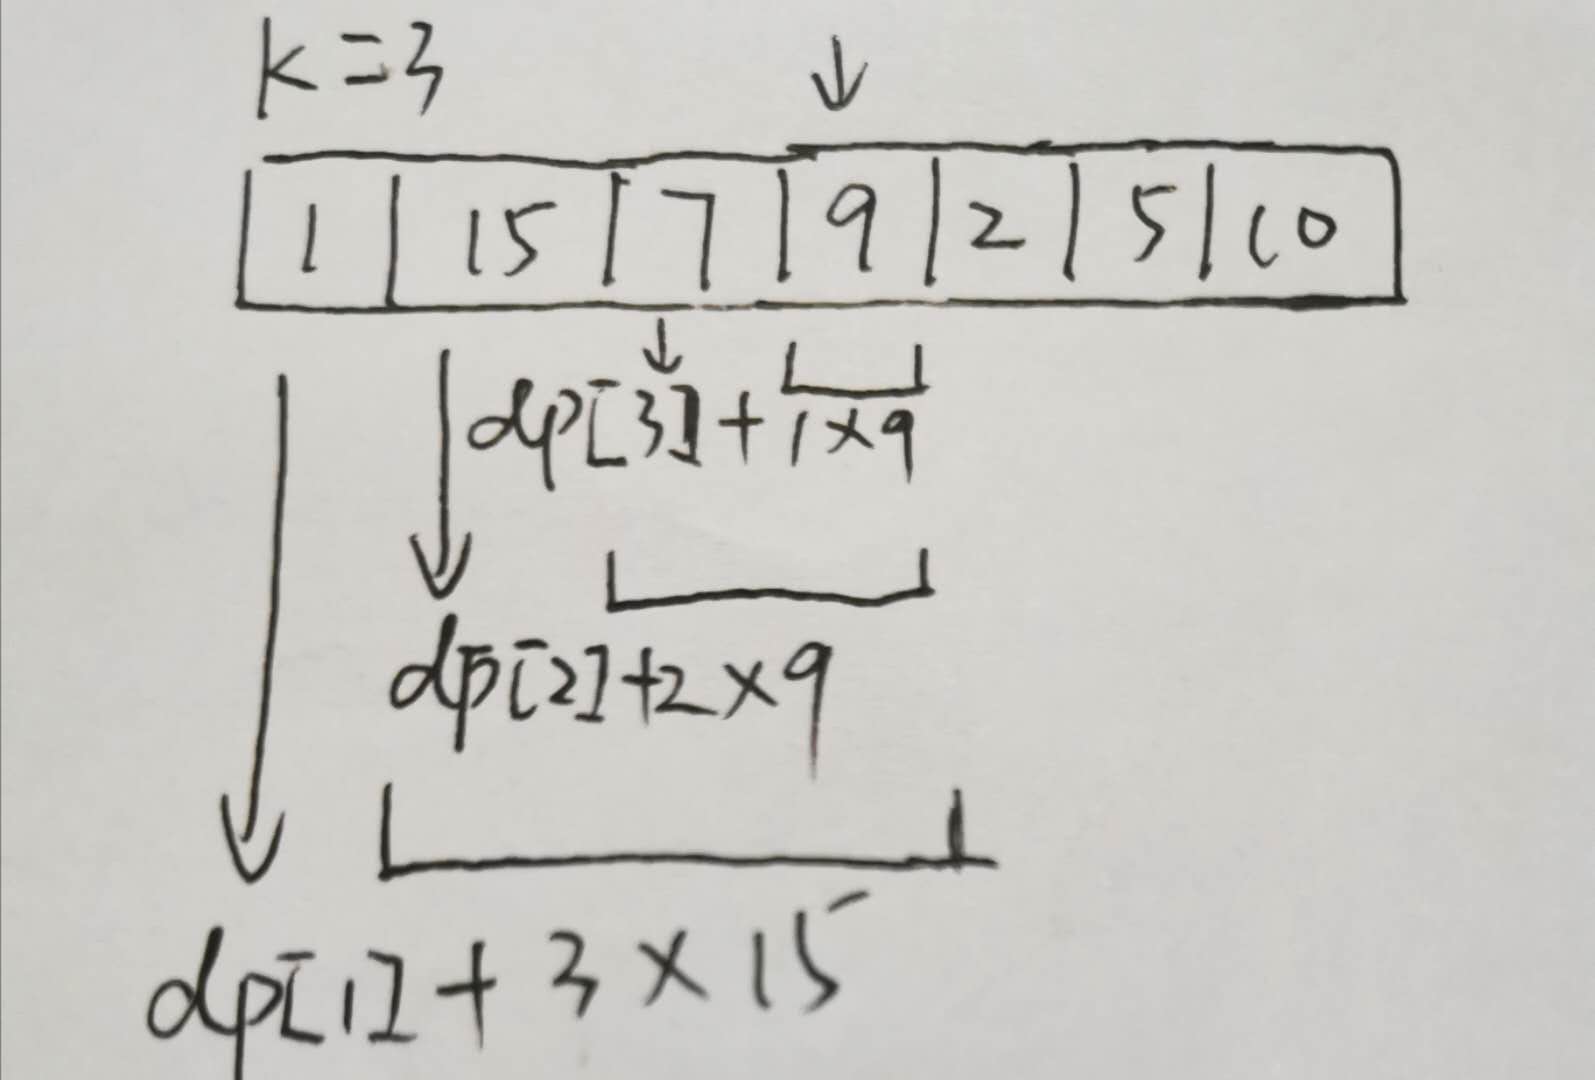 k=3
1 | 15 | 7 | 9 | 2 | 5 | 10
dp[3]+1×9
dp[2]+2×9
dp[1]+3×15